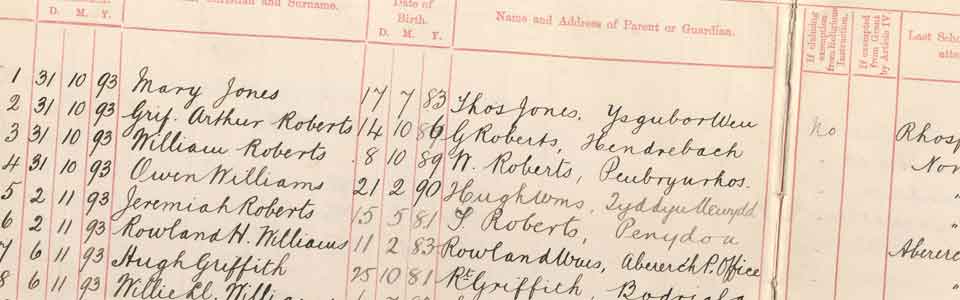 Christian and Surname. Date of Birth. Name and Address of Parent or Guardian. If claiming exemption from Religious Instruction. If exempted from Grant by Article IV Last Scho
D. M. Y. D. M. Y. atte
1 31 10 93 Mary Jones 17 7 83 Thos Jones, Ysguborwen
2 31 10 93 Grif. Arthur Roberts 14 10 86 G Roberts, Hendrebach No Rhosf
3 31 10 93 William Roberts 8 10 89 W. Roberts, Penbrynrhos. Non
4 31 10 93 Owen Williams 21 2 90 Hugh Wms, Tyddyn llewydd "
5 2 11 93 Jeremiah Roberts 15 5 81 T. Roberts, Penydou "
6 2 11 93 Rowland H. Williams 11 2 83 Rowland Wms, Abererch P. Office Aberere
7 6 11 93 Hugh Griffith 25 10 81 Rt Griffith, "
8 6 11 93 Willie Ll. Williams